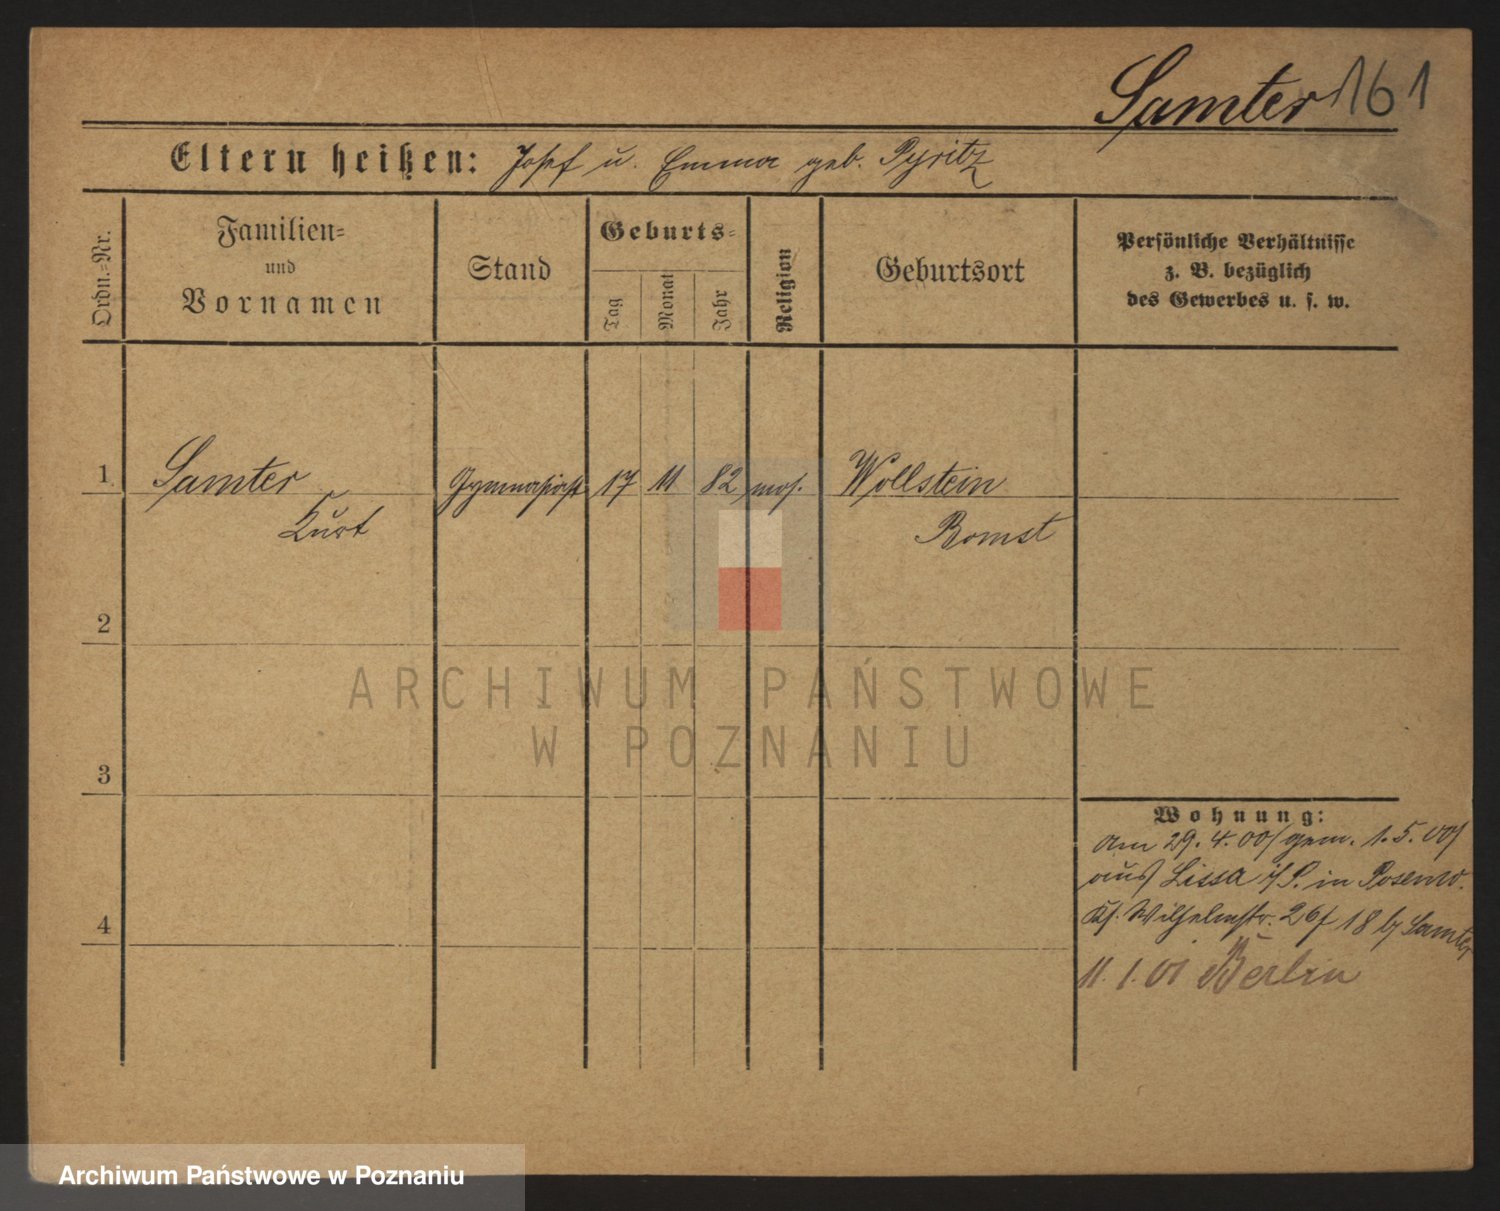 Samter 161
Eltern heißen: Josef u. Emma geb. Pyritz
Ordn.-Nr.
Familien-
und
Vornamen
Stand
Geburts-
Tag
Monat
Jahr
Religion
Geburtsort
Persönliche Verhältnisse
z. B. bezüglich
des Gewerbes u. s. w.
1 Samter Gymnasiast 17 11 82 mos. Wollstein
Kurt Bomst
2
3
4
ARCHIWUM PAŃSTWOWE
W POZNANIU
Wohnung:
Am 29. 4. 00/ gem. 1. 5. 00/
aus Lissa i/P. in Posen
Wilhelmstr. 26/ 18 b/ Samter
11. 1. 01 Berlin
Archiwum Państwowe w Poznaniu